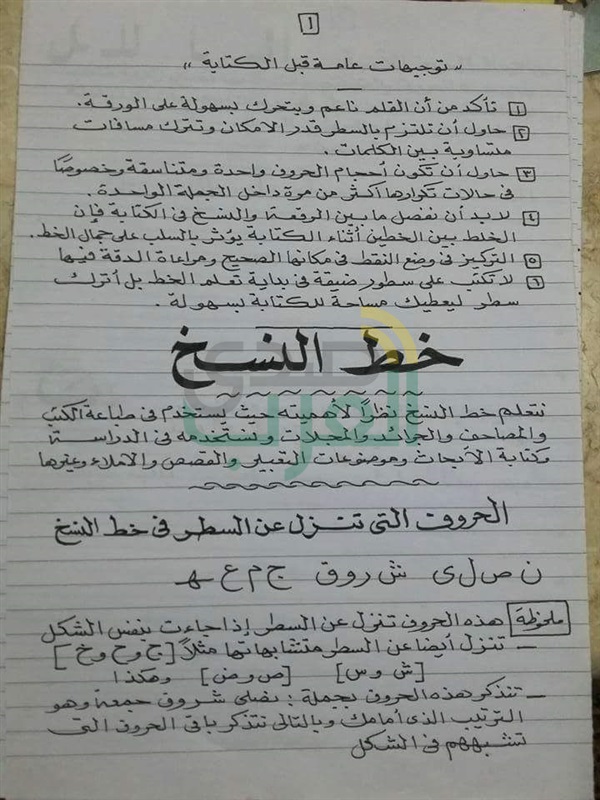 ١
" توجيهات عامة قبل الكتابة "
١ تأكد من أن القلم ناعم ويتحرك بسهولة على الورقة.
٢ حاول أن تلتزم بالسطر قدر الامكان وتترك مسافات
متساوية بين الكلمات.
٣ حاول أن تكون أحجام الحروف واحدة ومتناسقة وخصوصًا
في حالات تكرارها أكثر من مرة داخل الجملة الواحدة.
٤ لابد أن نفصل ما بين الرقعة والنسخ في الكتابة فإن
الخلط بين الخطين أثناء الكتابة يؤثر بالسلب على جمال الخط.
٥ التركيز في وضع النقط في مكانها الصحيح ومراعاة الدقة فيها
٦ لا تكتب على سطور ضيقة في بداية تعلم الخط بل أترك
سطر ليعطيك مساحة للكتابة بسهولة.
خط النسخ
نتعلم خط النسخ نظرًا لأهميته حيث يستخدم في طباعة الكتب
والمصاحف والجرائد والمجلات ونستخدمه في الدراسة
وكتابة الأبحاث وموضوعات التعبير والقصص والاملاء وغيرها
الحروف التي تنزل عن السطر في خط النسخ
ن ص ل ى ش ر و ق ج م ع ـهـ
ملحوظة هذه الحروف تنزل عن السطر إذا جاءت بنفس الشكل
– تنزل أيضا عن السطر متشابهاتها مثلاً [ج وح وخ]
[ش وس] [ص وض] وهكذا
– نتذكر هذه الحروف بجملة: نصلى شروق جمعة وهو
الترتيب الذى أمامك وبالتالى نتذكر باقى الحروف التى
تشبههم فى الشكل
صدى
العرب